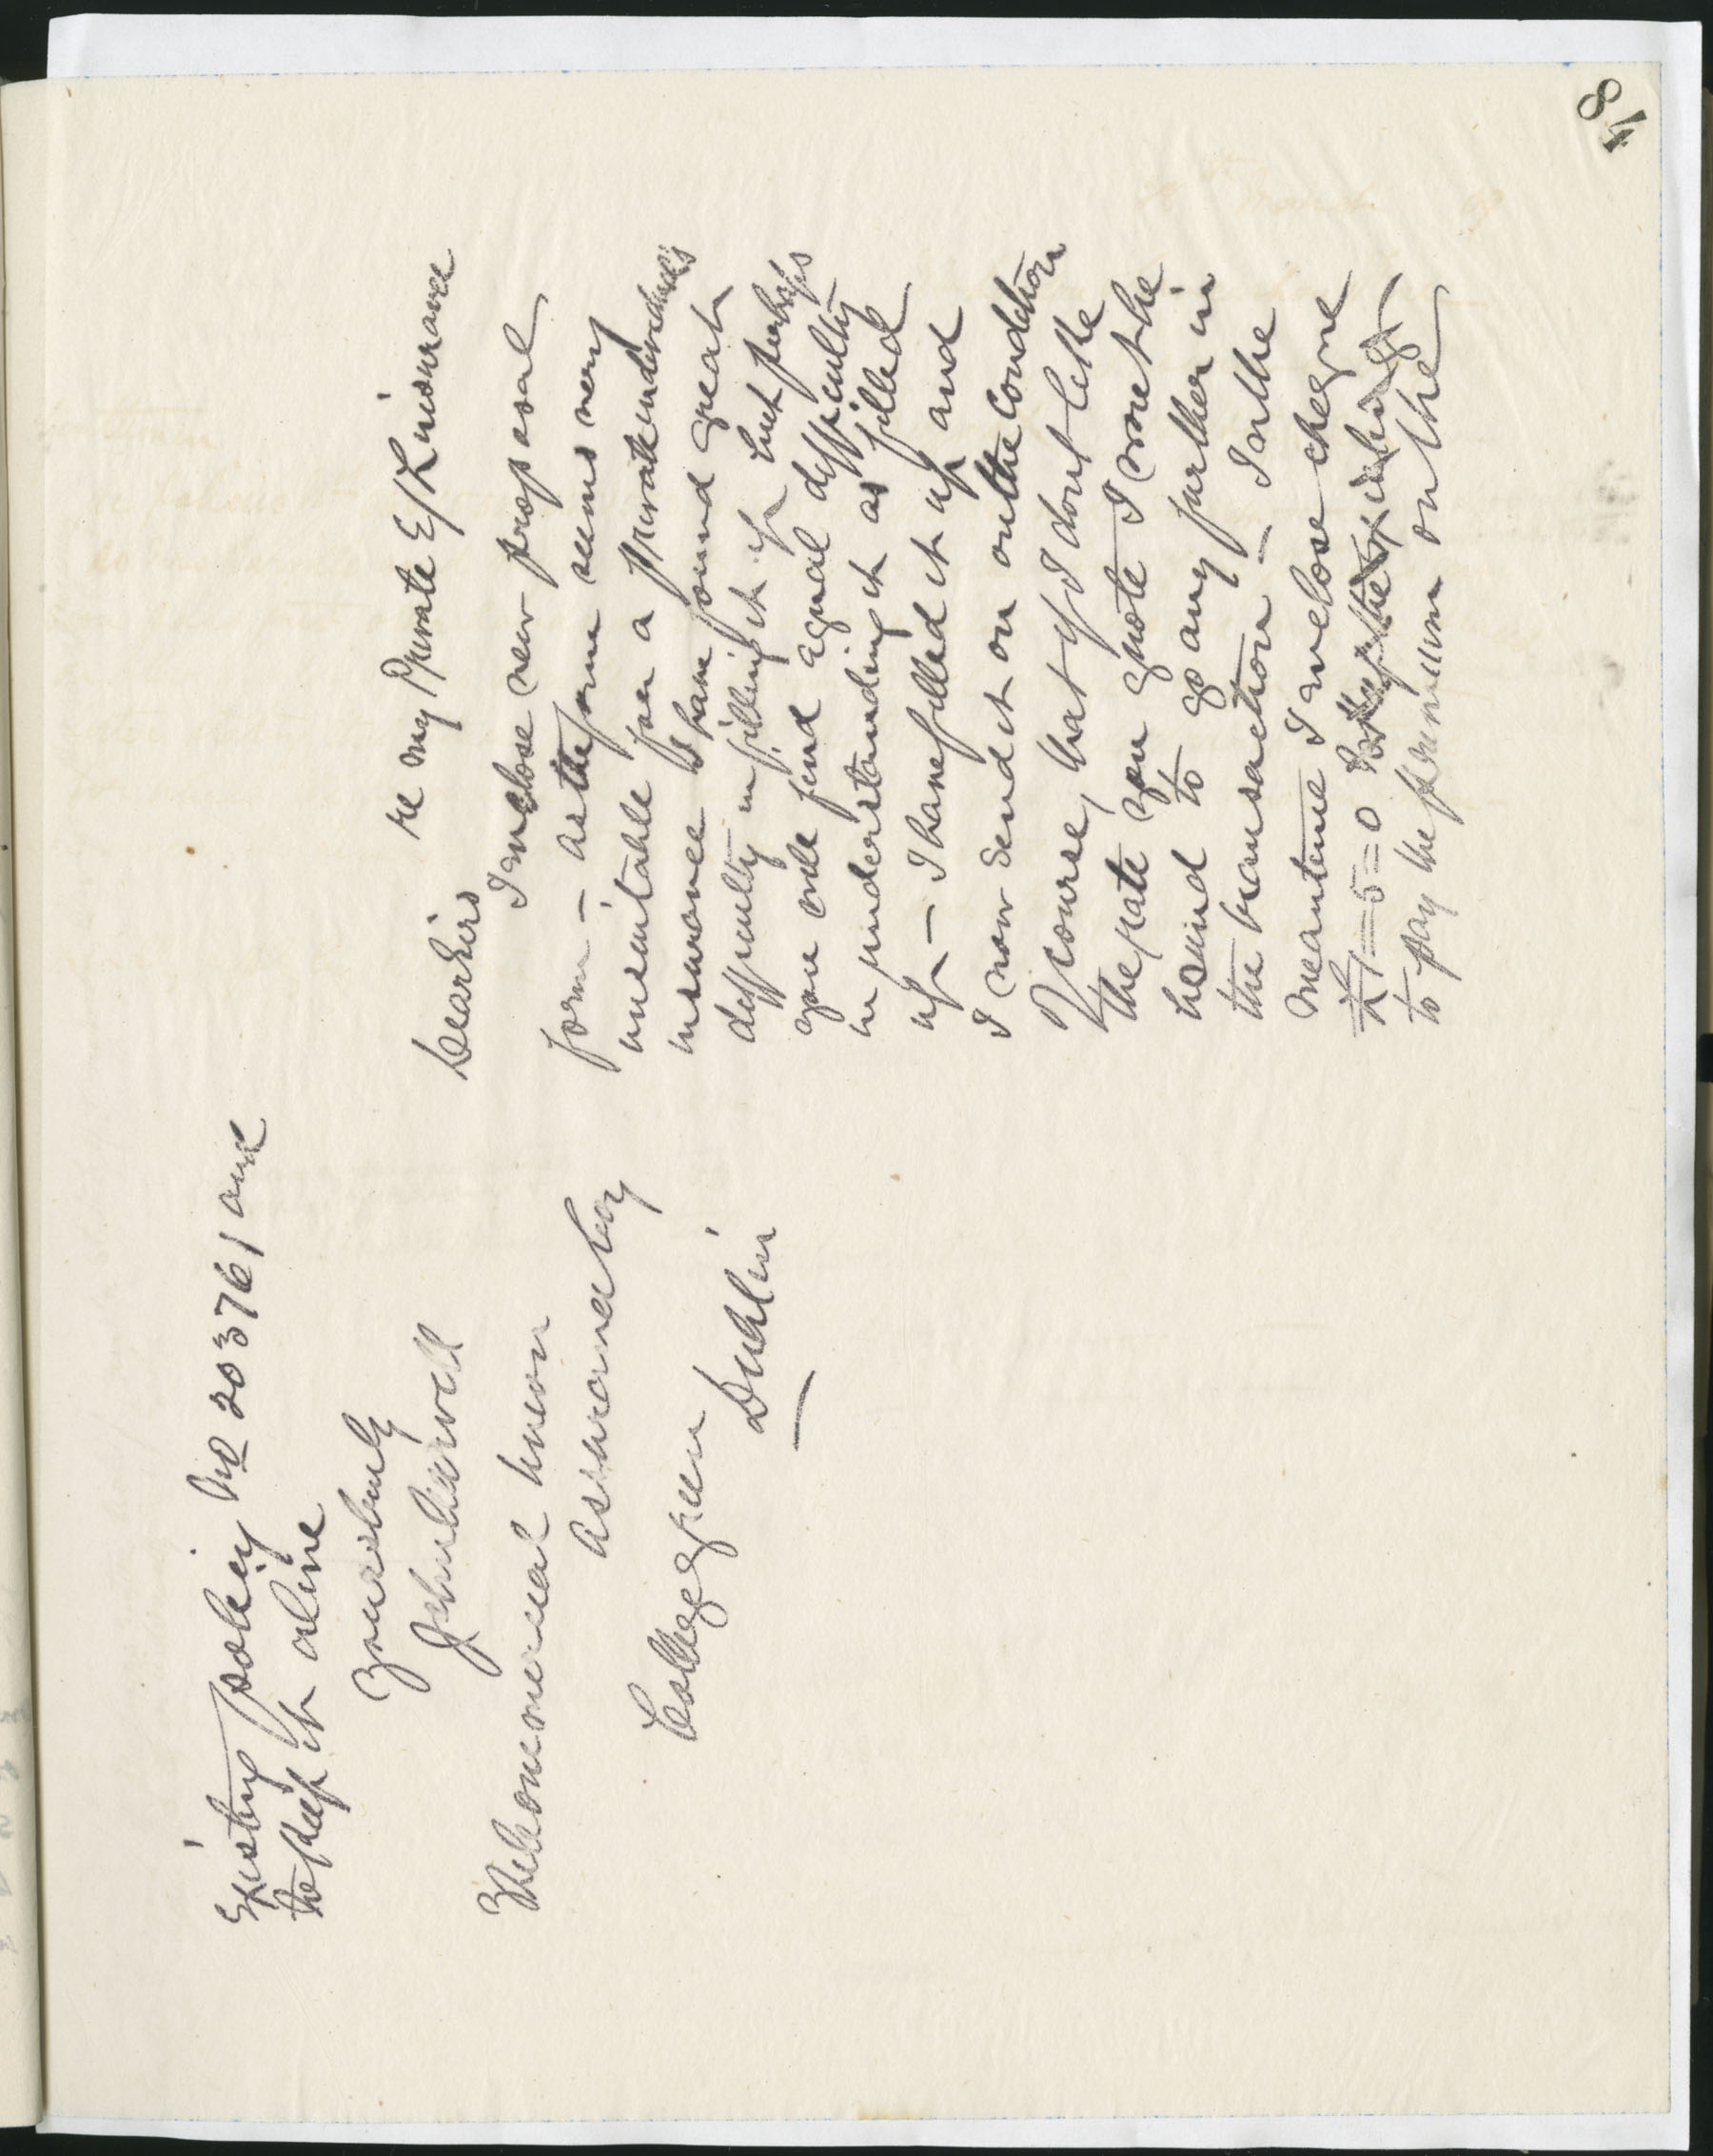 418
re my Private E/L insurance
Dear Sirs
I enclose new proposal
form – as the form seems very
unsuitable for a private individual's
insurance I have found great
difficulty in filling it up but perhaps
you will find equal difficulty
in understanding it as filled
up – I have filled it up and
I now send it on on the condition
of course, that if I don't like
the rate you quote I wont be
bound to go any further in
the transaction – In the
meantime I enclose cheque
£1=5=0
to pay the premium on the
existing policy No 203761 and
to keep it alive
Yours truly
The Commercial Union
Assurance Coy
College green
Dublin